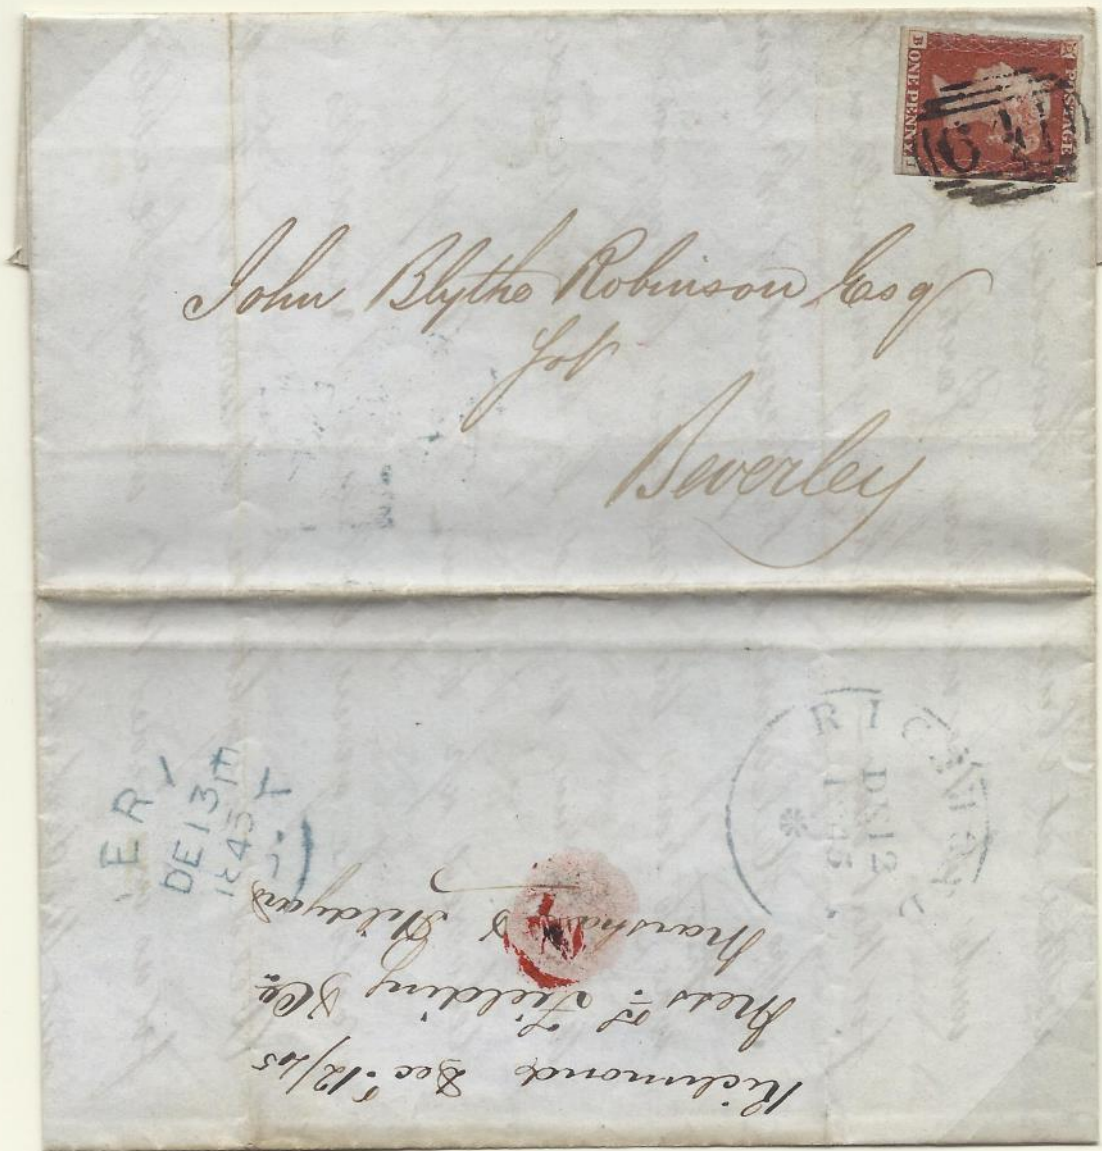 POSTAGE
ONE PENNY
B
John Blythe Robinson Esq
Beverley
RICHMOND
DE 12
1845
DE 13
1845
Richmond Dec. 12/45
Mess.rs Fielding & Co
Marshall & Hildyard